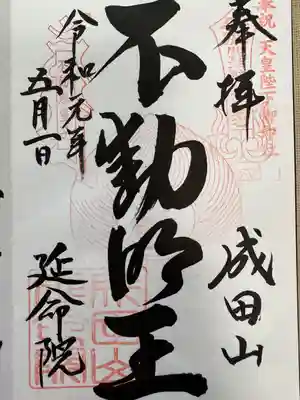 奉拝
成田山
不動明王
令和元年
五月一日
延命院